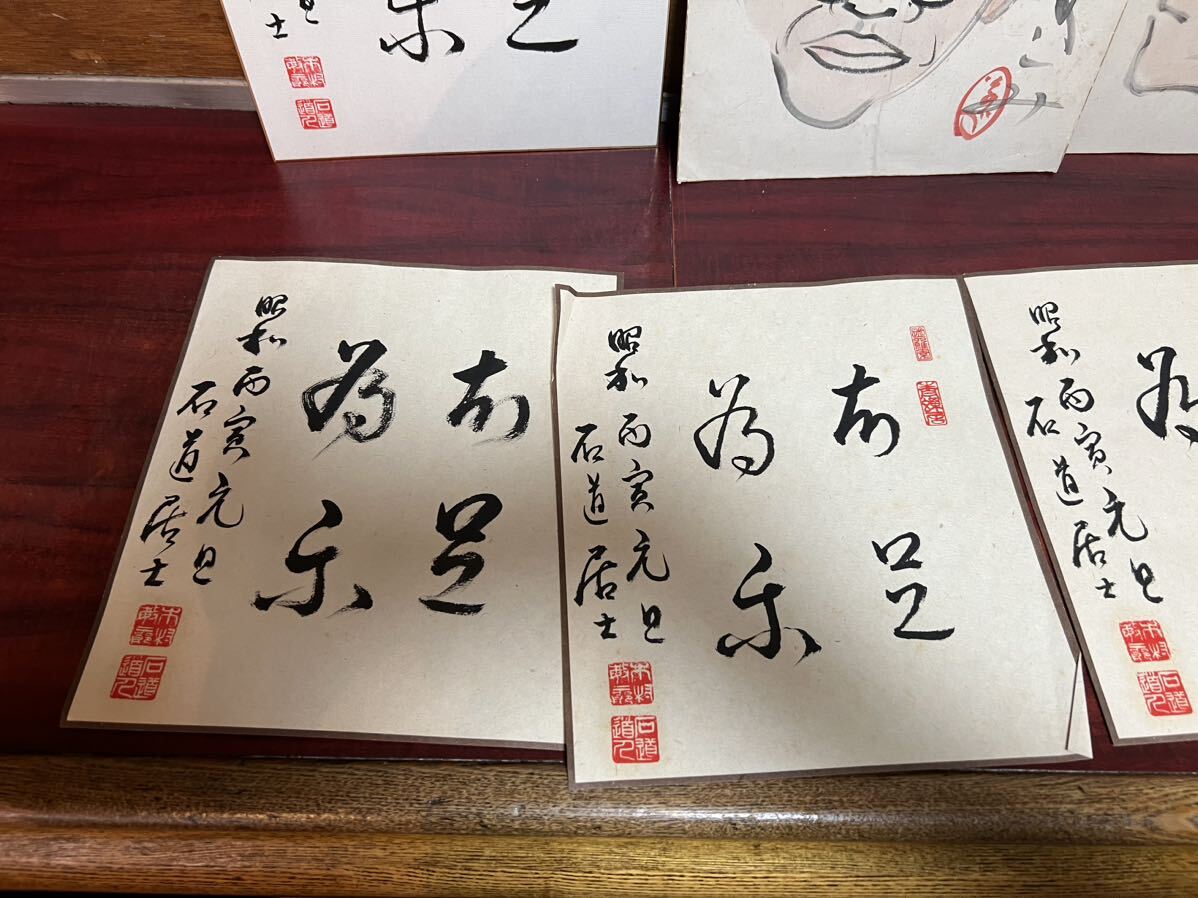 足
楽
旦
士
知足
為楽
昭和丙寅元旦
石道居士
知足
為楽
昭和丙寅元旦
石道居士
為
昭和丙寅元旦
石道居士